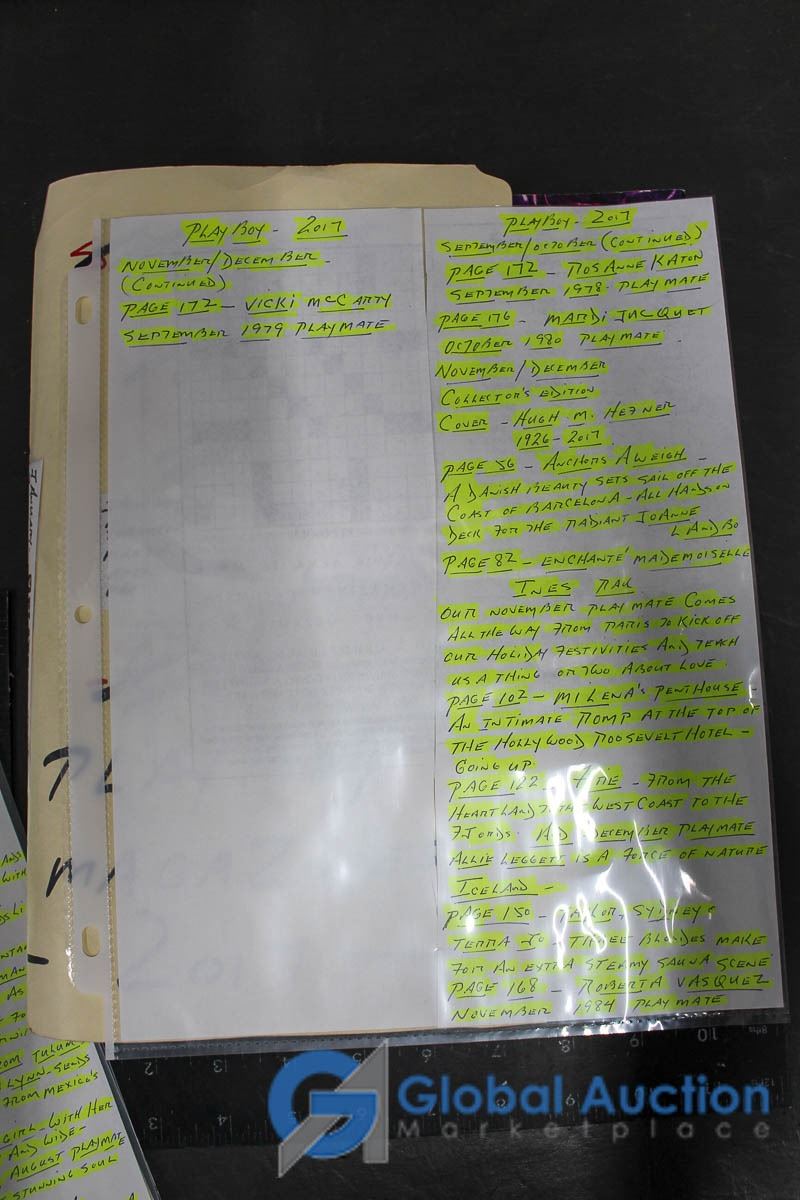 PLAYBOY - 2017
NOVEMBER/DECEMBER -
(CONTINUED)
PAGE 172 - VICKI McCARTY
SEPTEMBER 1979 PLAYMATE
PLAYBOY - 2017
SEPTEMBER/OCTOBER (CONTINUED)
PAGE 172 - ROSANNE KATON
SEPTEMBER 1978 PLAYMATE
PAGE 176 - MARDI JACQUET
OCTOBER 1980 PLAYMATE
NOVEMBER/DECEMBER
COLLECTOR'S EDITION
COVER - HUGH M. HEFNER
1926-2017
PAGE 56 - ANCHORS AWEIGH -
A DANISH BEAUTY SETS SAIL OFF THE
COAST OF BARCELONA - ALL HANDS ON
DECK FOR THE RADIANT JOANNE
LANDBO
PAGE 82 - ENCHANTÉ MADEMOISELLE
INES RAU
OUR NOVEMBER PLAYMATE COMES
ALL THE WAY FROM PARIS TO KICK OFF
OUR HOLIDAY FESTIVITIES AND TEACH
US A THING OR TWO ABOUT LOVE.
PAGE 102 - MILENA'S PENTHOUSE -
AN INTIMATE ROMP AT THE TOP OF
THE HOLLYWOOD ROOSEVELT HOTEL -
GOING UP
PAGE 122 - - FROM THE
HEARTLAND WEST COAST TO THE
FJORDS. DECEMBER PLAYMATE
ALLIE LEGGETT IS A FORCE OF NATURE
ICELAND -
PAGE 150 - TAYLOR, SYDNEY &
TERRA JO - THREE BLONDES MAKE
FOR AN EXTRA STEAMY SAUNA SCENE
PAGE 168 - ROBERTA VASQUEZ
NOVEMBER 1984 PLAYMATE
WITH
MAN
AS
TULUM
LYNN - SENDS
FROM MEXICO'S
GIRL - WITH HER
AND WIDE -
AUGUST PLAYMATE
STUNNING SOUL
2 3 4 5 6 7 8 9 10
Global Auction
Marketplace